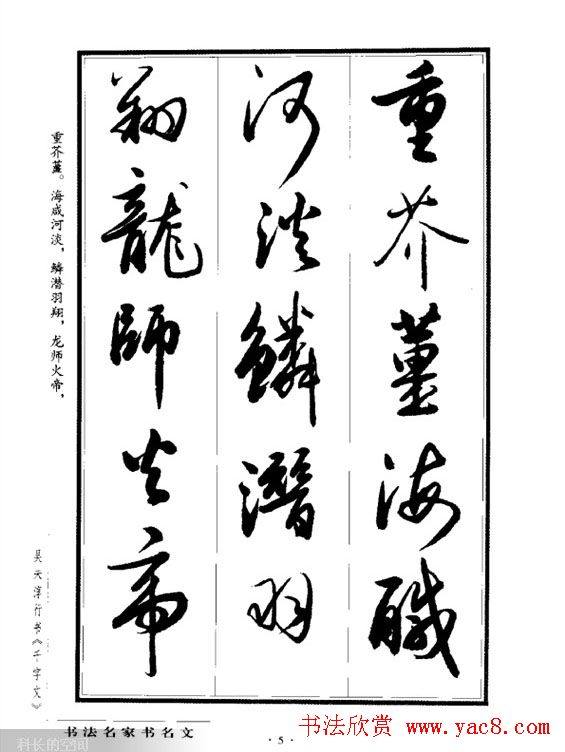 重芥薑海醎
河淡鱗潛羽
翔龍師火帝
重芥薑。海咸河淡，鳞潜羽翔，龙师火帝，
吴天淳行书《千字文》
书法名家书名文
·5·
科长的空间
书法欣赏 www.yac8.com